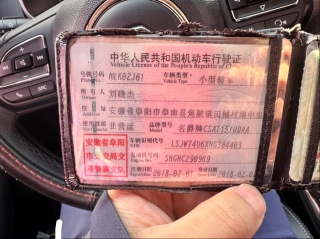 中华人民共和国机动车行驶证
Vehicle License of the People's Republic of C
号牌号码 皖K02J61 车辆类型 小型轿车
Plate No. Vehicle Type
所有人 刘晓杰
住址 安徽省阜阳市阜南县焦陂镇
使用性质 非营运 品牌型号 名爵牌CSA7151UDAA
安徽省阜阳 车辆识别代号 LSJW74U6XHG384403
市公安局交 发动机号码 SHGHCZ90969
通警察支队 注册日期 2018-02-0 发证日期 2018-02-0